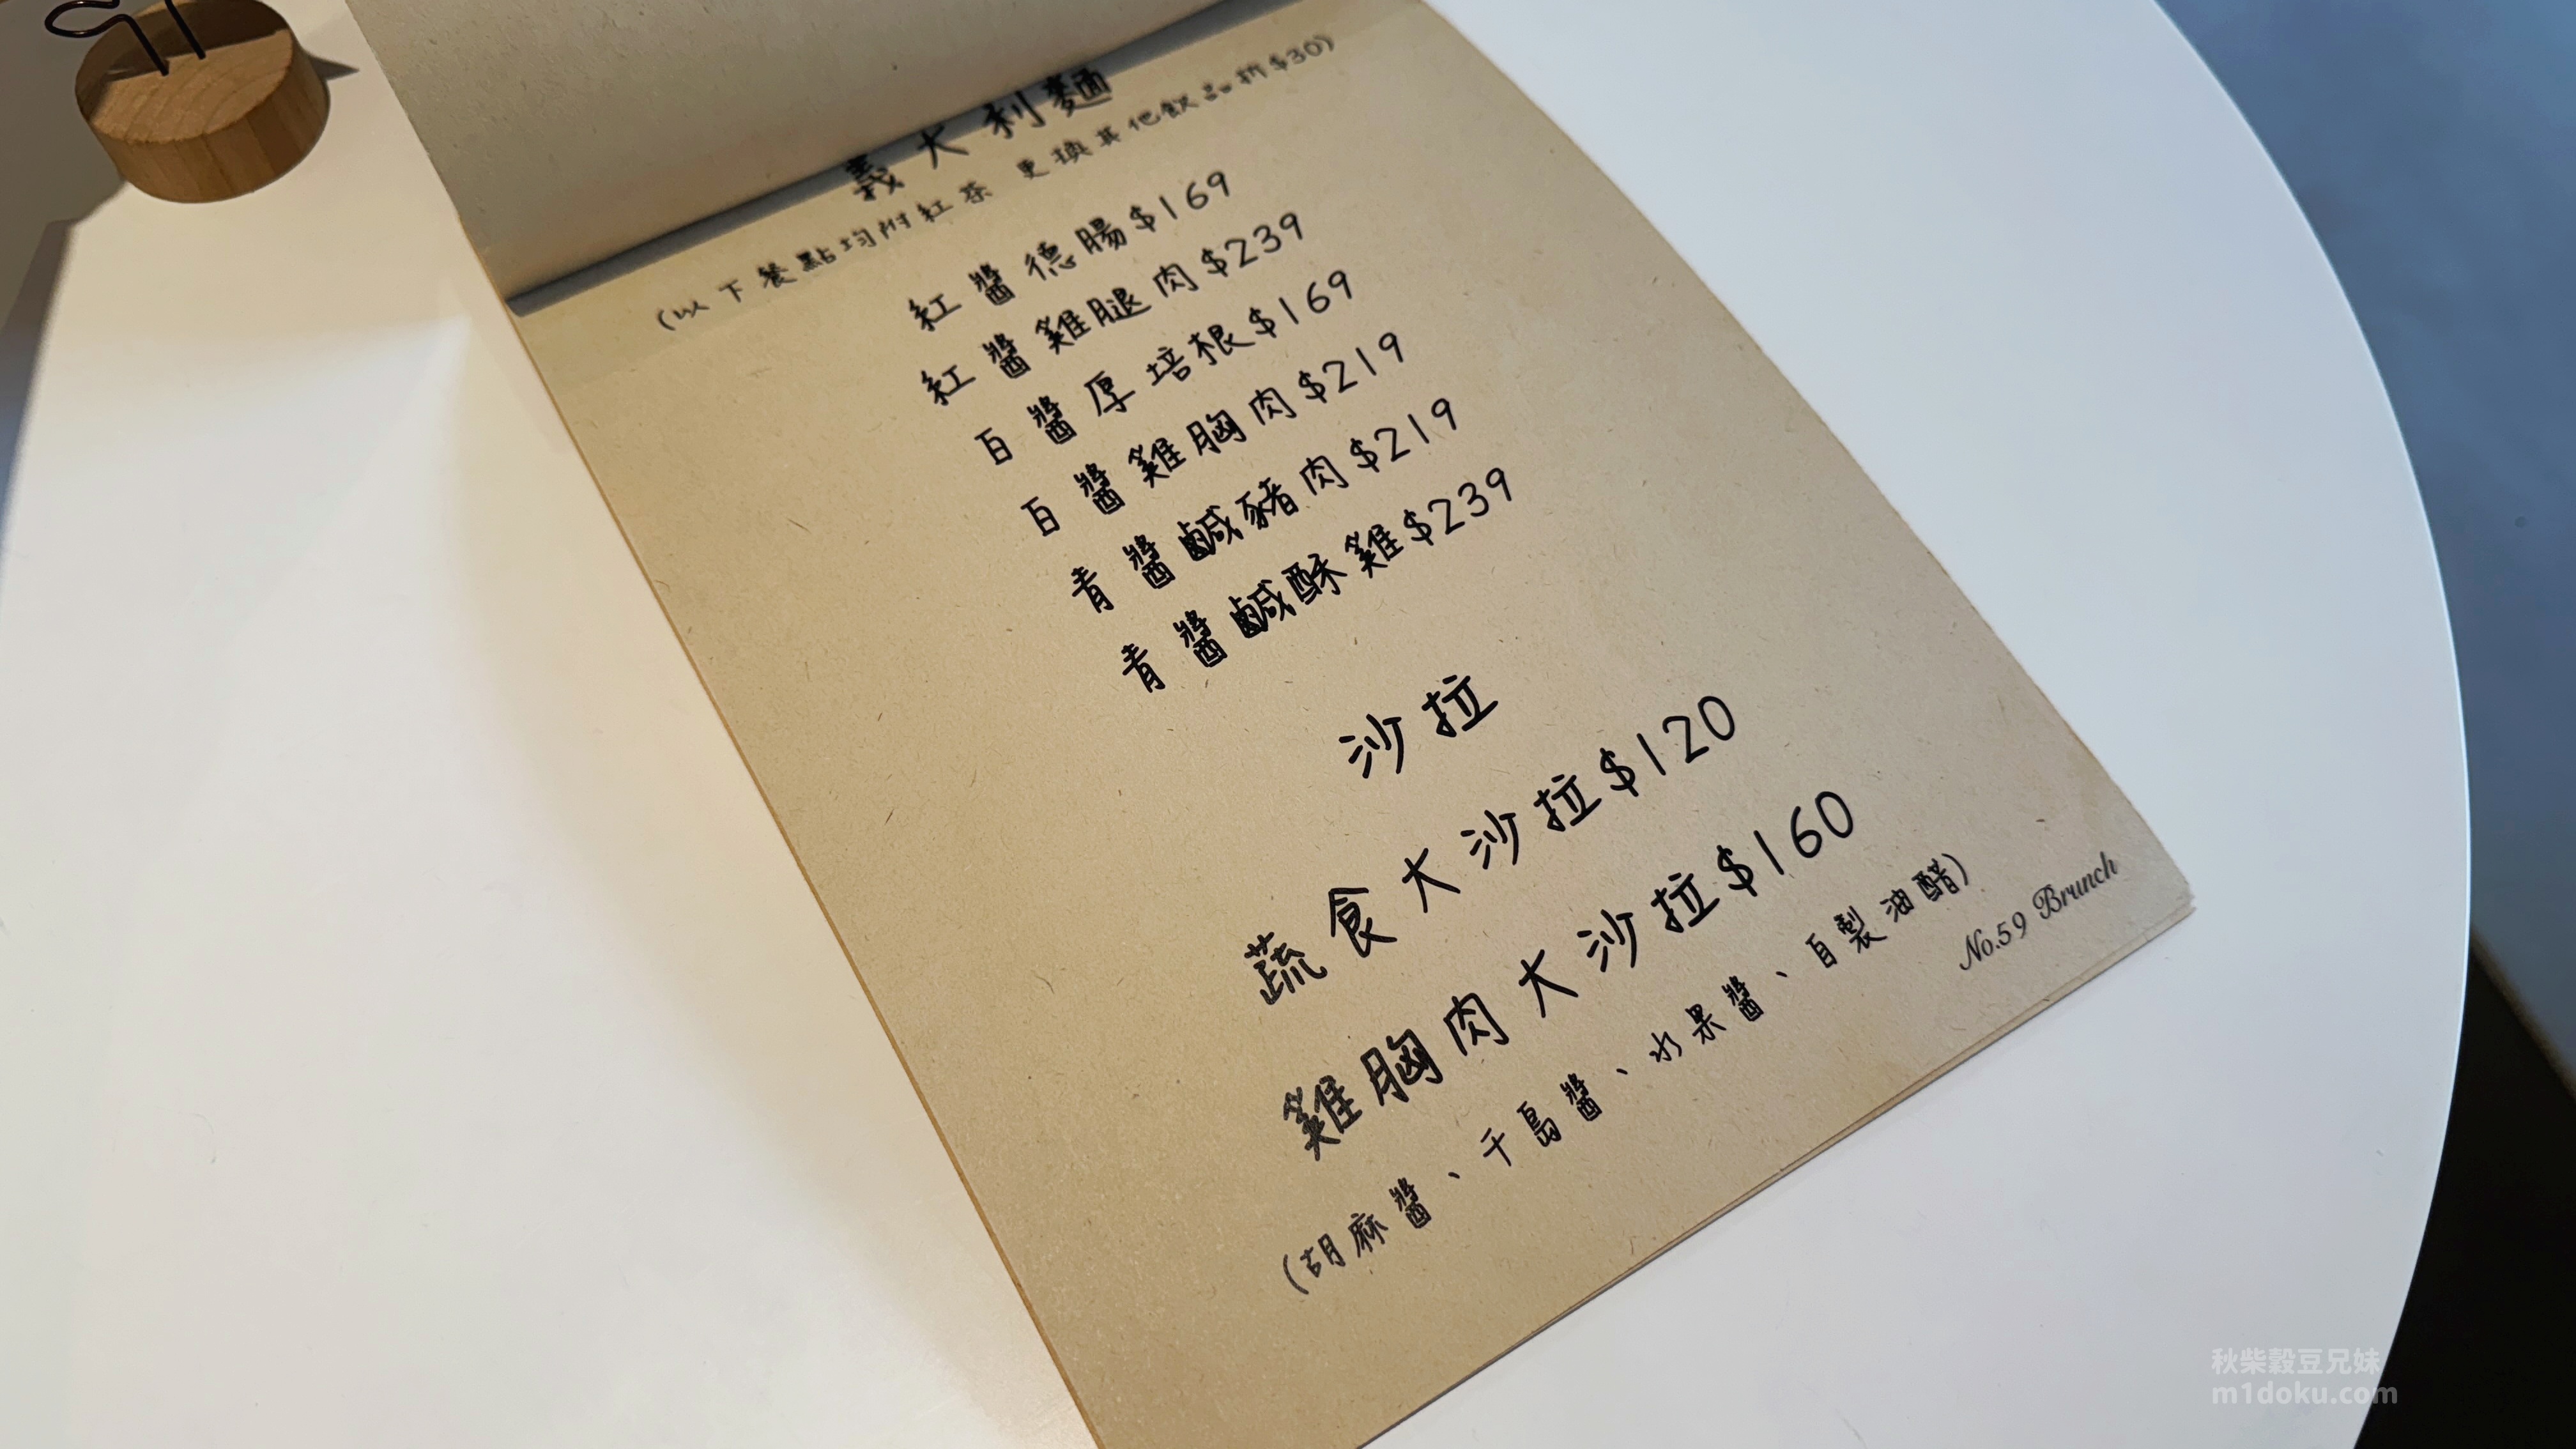 義大利麵
(以下餐點均附紅茶 更換其他飲品折$30)
紅醬德腸$169
紅醬雞腿肉$239
白醬厚培根$169
白醬雞胸肉$219
青醬鹹豬肉$219
青醬鹹酥雞$239
沙拉
蔬食大沙拉$120
雞胸肉大沙拉$160
(胡麻醬、千島醬、水果醬、自製油醋)
No.59 Brunch
秋柴穀豆兄妹
m1doku.com